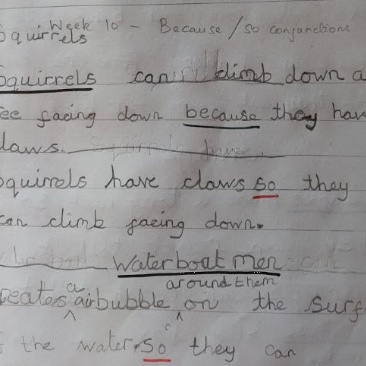 Week 10 - Because / so conjunctions
Squirrels
Squirrels can climb down a
ee facing down because they hav
laws.
Squirrels have claws so they
can climb facing down.
Waterboat men
a around them
reates airbubble on the surf
the water. so they can